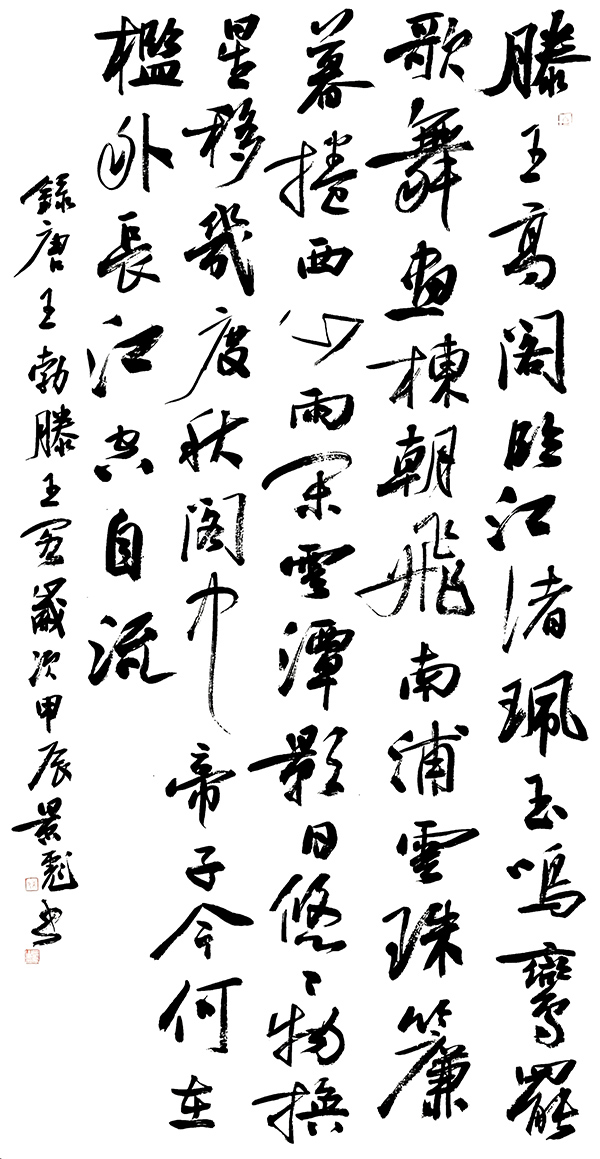 滕王高閣臨江渚珮玉鳴鸞罷
歌舞畫棟朝飛南浦雲珠簾
暮捲西山雨閑雲潭影日悠〻物換
星移幾度秋閣中帝子今何在
檻外長江空自流
錄唐王勃滕王閣歲次甲辰景彪書